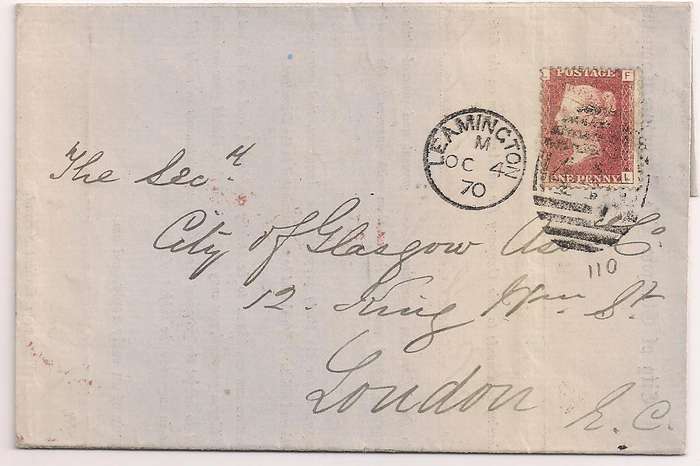 POSTAGE
L F
F L
ONE PENNY
LEAMINGTON
M
OC 4
70
The Secy
City of Glasgow Ass Co.
12. King Wm St
London E.C.
110